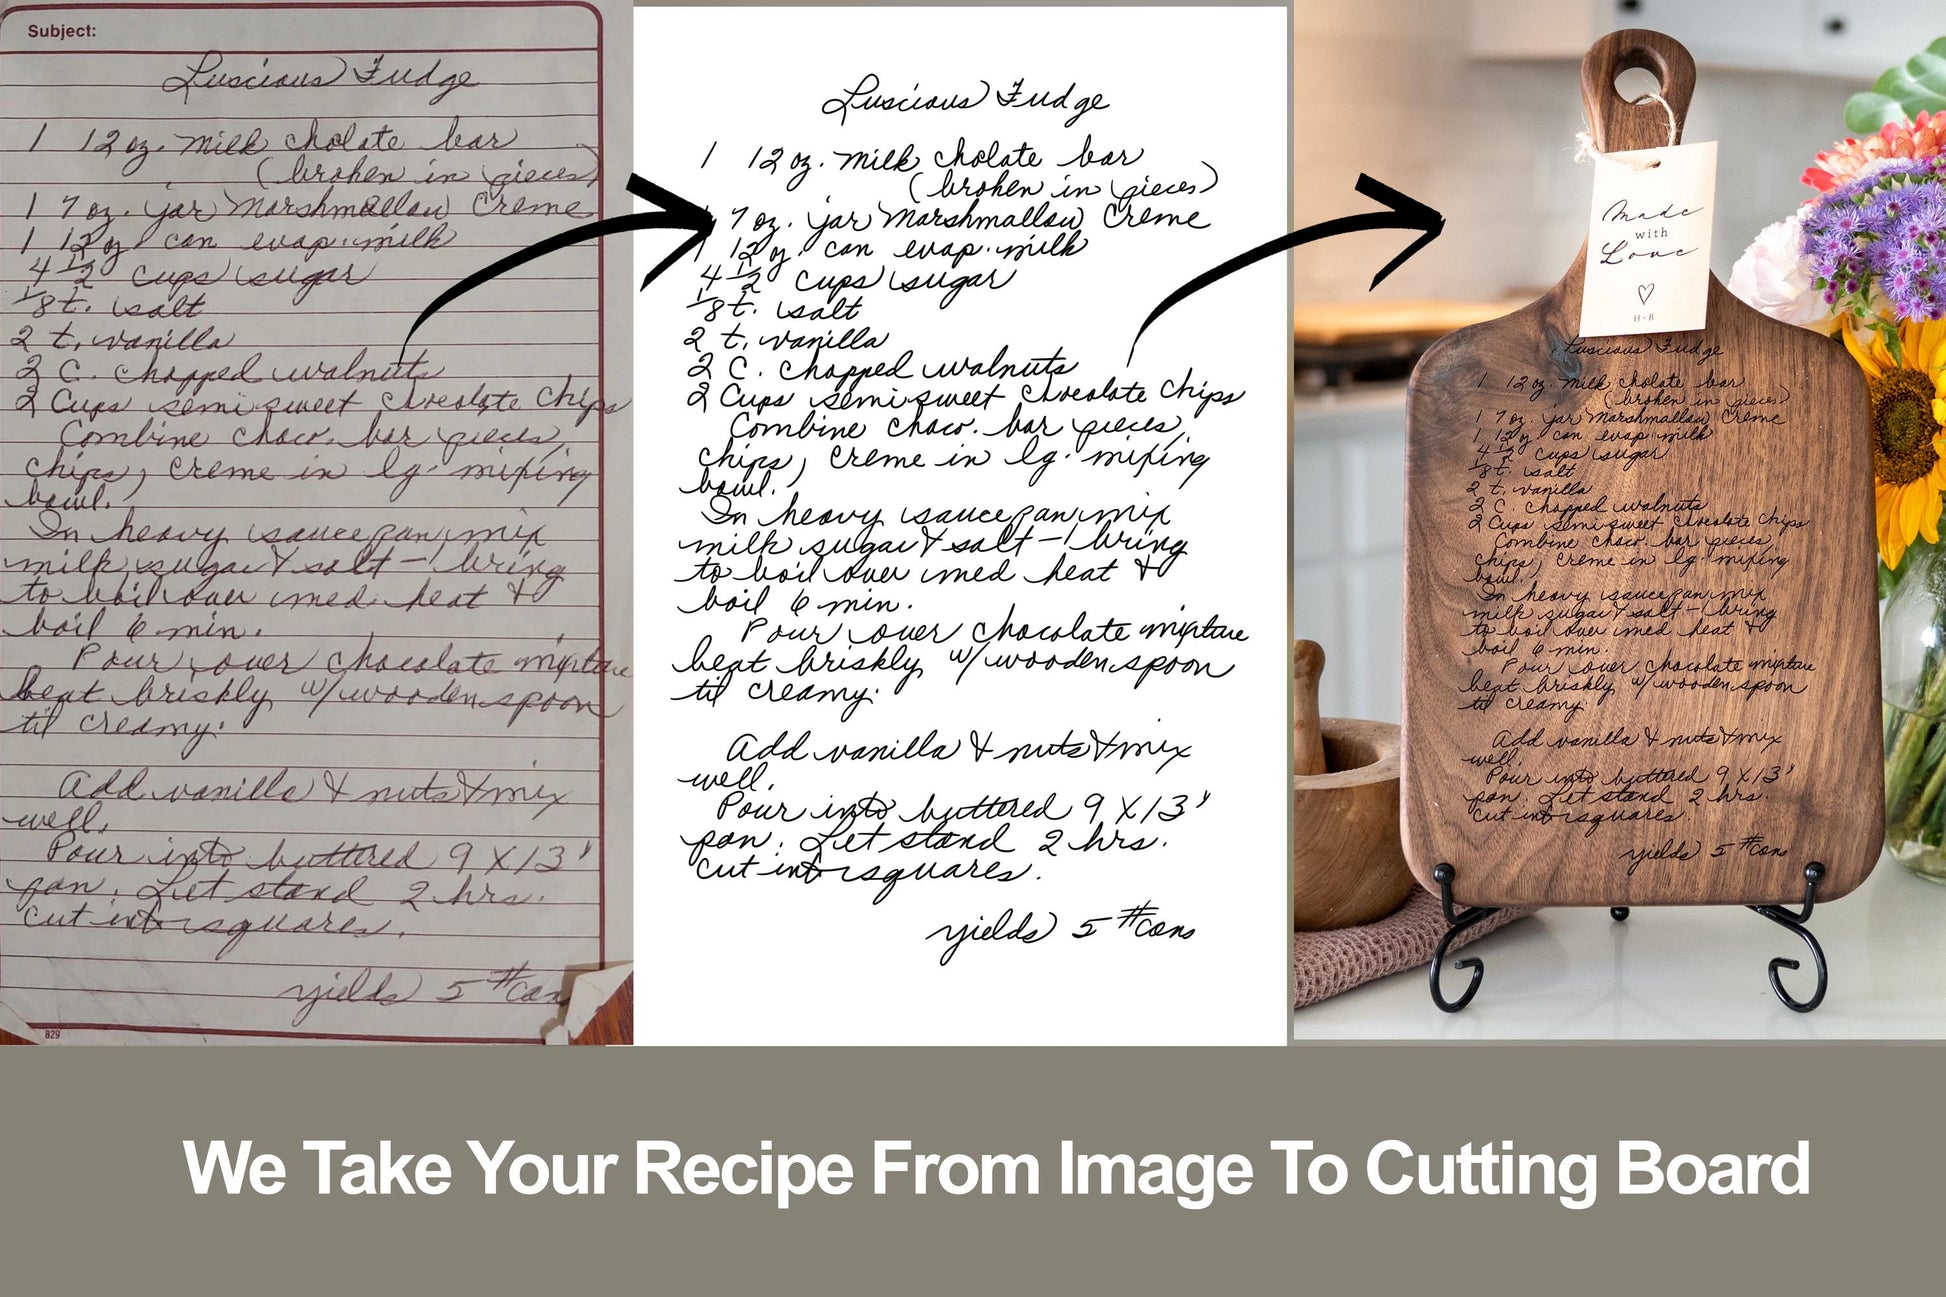 Subject:
Luscious Fudge
1 12 oz. milk cholate bar
(broken in pieces)
1 7 oz. jar Marshmallow Creme
1 12 oz can evap. milk
4 1/2 cups sugar
1/8 t. salt
2 t. vanilla
2 C. chopped walnuts
2 Cups semi-sweet chocolate chips
Combine choco. bar pieces,
chips, creme in lg. mixing
bowl.
In heavy saucepan, mix
milk sugar & salt - bring
to boil over med heat &
boil 6 min.
Pour over chocolate mixture
beat briskly w/ wooden spoon
til creamy.
Add vanilla & nuts & mix
well.
Pour into buttered 9 X 13"
pan. Let stand 2 hrs.
cut into squares.
yields 5 #
B29
Luscious Fudge
1 12 oz. milk cholate bar
(broken in pieces)
1 7 oz. jar Marshmallow Creme
1 12 oz can evap. milk
4 1/2 cups sugar
1/8 t. salt
2 t. vanilla
2 C. chopped walnuts
2 Cups semi-sweet chocolate chips
Combine choco. bar pieces,
chips, creme in lg. mixing
bowl.
In heavy saucepan, mix
milk sugar & salt - bring
to boil over med heat &
boil 6 min.
Pour over chocolate mixture
beat briskly w/ wooden spoon
til creamy.
Add vanilla & nuts & mix
well.
Pour into buttered 9 X 13"
pan. Let stand 2 hrs.
cut into squares.
yields 5 #
Made
with
Love
H+B
Luscious Fudge
1 12 oz. milk cholate bar
(broken in pieces)
1 7 oz. jar Marshmallow Creme
1 12 oz can evap. milk
4 1/2 cups sugar
1/8 t. salt
2 t. vanilla
2 C. chopped walnuts
2 Cups semi-sweet chocolate chips
Combine choco. bar pieces,
chips, creme in lg. mixing
bowl.
In heavy saucepan, mix
milk sugar & salt - bring
to boil over med heat &
boil 6 min.
Pour over chocolate mixture
beat briskly w/ wooden spoon
til creamy.
Add vanilla & nuts & mix
well.
Pour into buttered 9 X 13"
pan. Let stand 2 hrs.
cut into squares.
yields 5 #
We Take Your Recipe From Image To Cutting Board